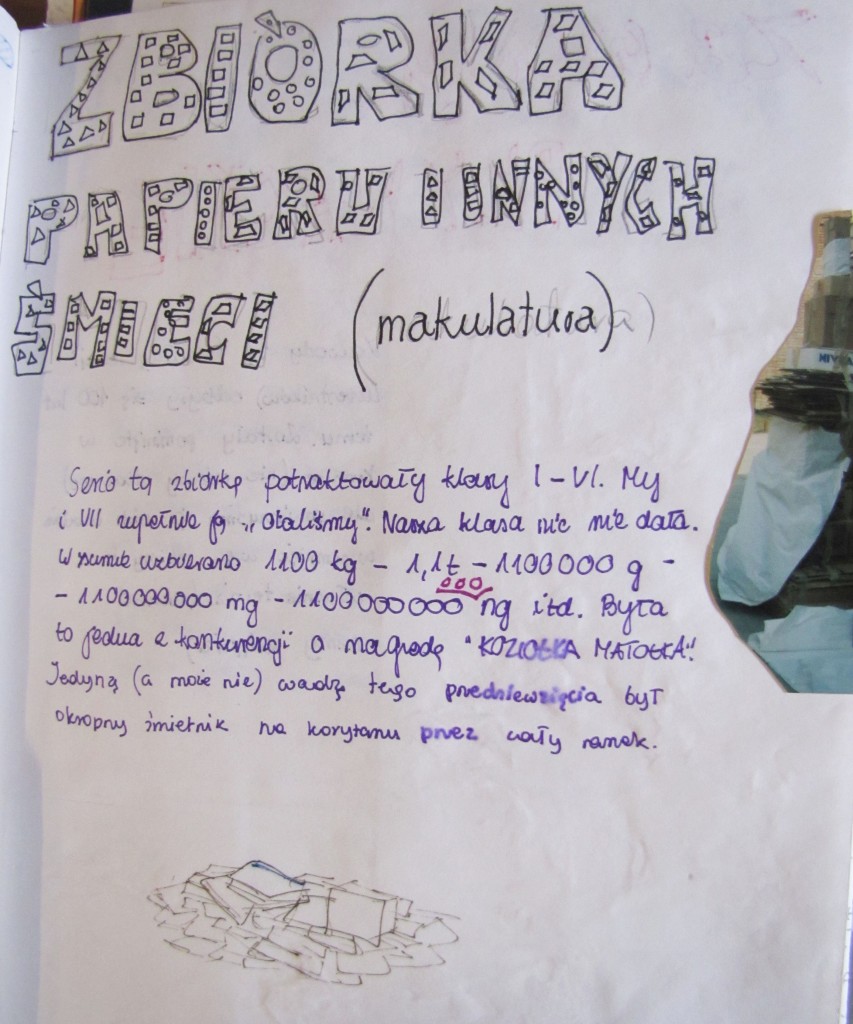 ZBIÓRKA
PAPIERU I INNYCH
ŚMIECI (makulatura)
Serio tą zbiórkę potraktowały klasy I-VI. My
i VII zupełnie ją „olaliśmy". Nasza klasa nic nie dała.
W sumie uzbierano 1100 kg - 1,1t - 1100000 g -
- 1100000000 mg - 1100000000 000 ng itd. Była
to jedna z konkurencji o nagrodę "KOZIOŁKA MATOŁKA".
Jedyną (a może nie) wadą tego przedsięwzięcia był
okropny śmietnik na korytarzu przez cały ranek.
NIVEA